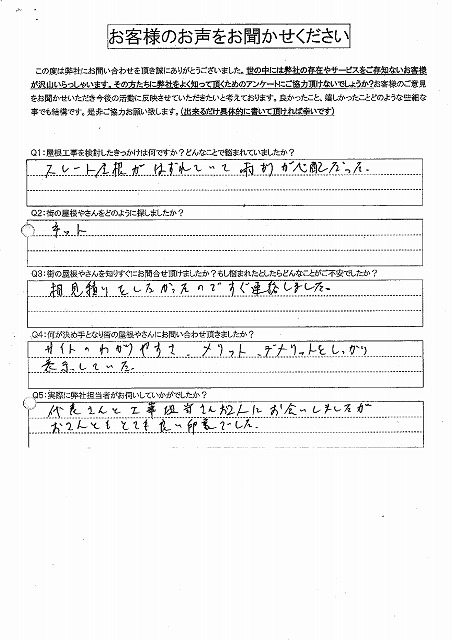 お客様のお声をお聞かせください
この度は弊社にお問い合わせを頂き誠にありがとうございました。世の中には弊社の存在やサービスをご存知ないお客様
が沢山いらっしゃいます。その方たちに弊社をよく知って頂くためのアンケートにご協力頂けないでしょうか？お客様のご意見
をお聞かせいただき今後の活動に反映させていただきたいと考えております。良かったこと、嬉しかったことどのような些細な
事でも結構です。是非ご協力お願い致します。（出来るだけ具体的に書いて頂ければ幸いです）
Q1：屋根工事を検討したきっかけは何ですか？どんなことで悩まれていましたか？
スレート屋根がはずれていて雨が心配だった。
Q2：街の屋根やさんをどのように探しましたか？
ネット
Q3：街の屋根やさんを知りすぐにお問合せ頂けましたか？もし悩まれたとしたらどんなことがご不安でしたか？
相見積りをしたかったのですぐ連絡しました。
Q4：何が決め手となり街の屋根やさんにお問い合わせ頂きましたか？
サイトのわかりやすさ、メリット、デメリットをしっかり
表示していた。
Q5：実際に弊社担当者がお伺いしていかがでしたか？
代表さんと工事担当さんお2人にお会いしましたが
お2人ともとても良い印象でした。